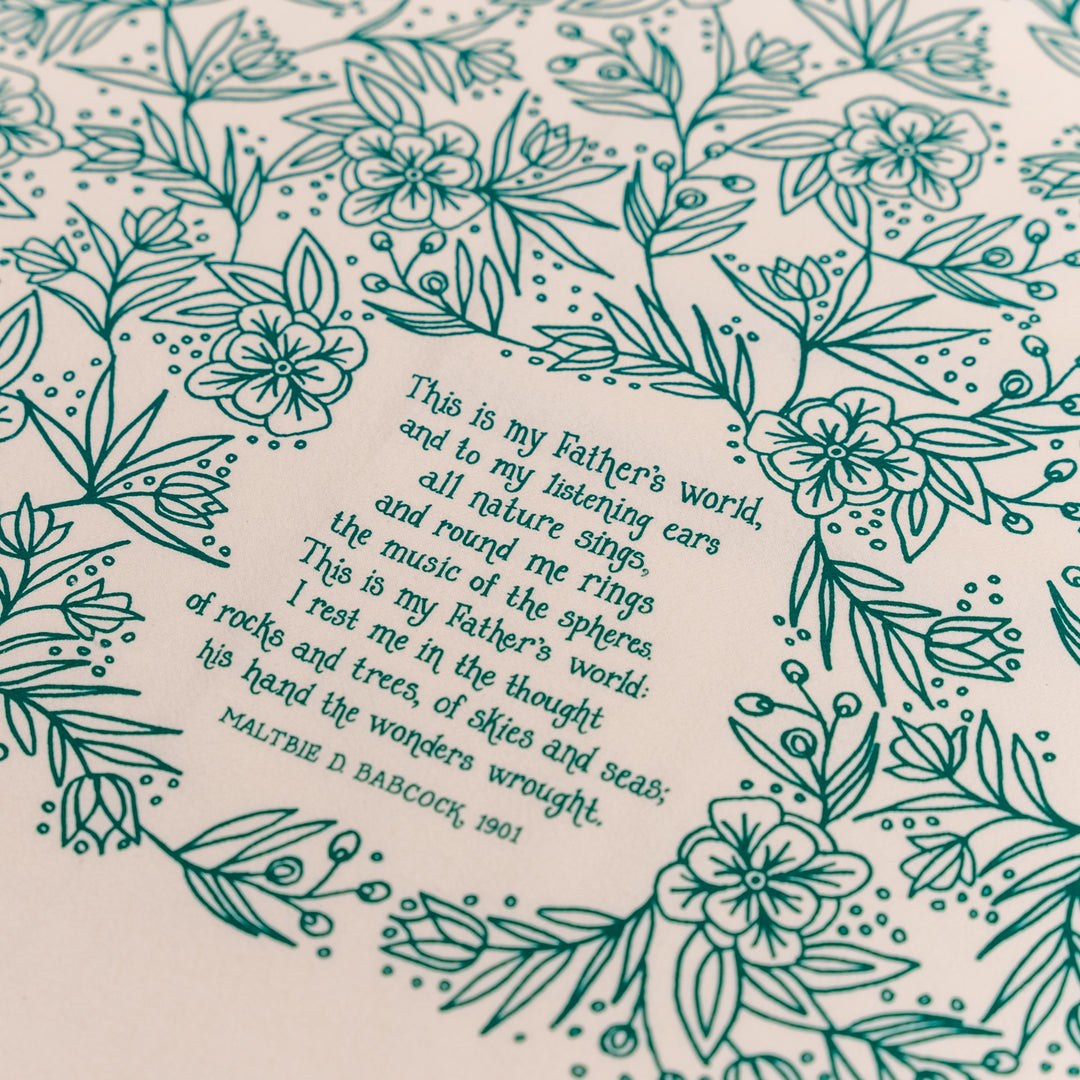 This is my Father's world,
and to my listening ears
all nature sings,
and round me rings
the music of the spheres.
This is my Father's world:
I rest me in the thought
of rocks and trees, of skies and seas;
his hand the wonders wrought.
MALTBIE D. BABCOCK, 1901